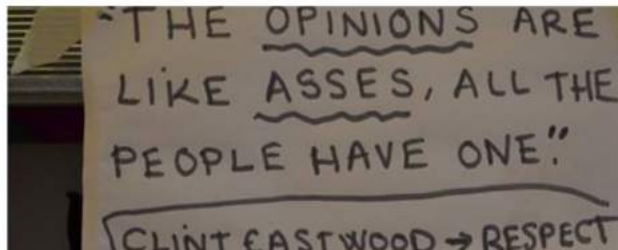 "THE OPINIONS ARE
LIKE ASSES, ALL THE
PEOPLE HAVE ONE."
CLINT EASTWOOD → RESPECT